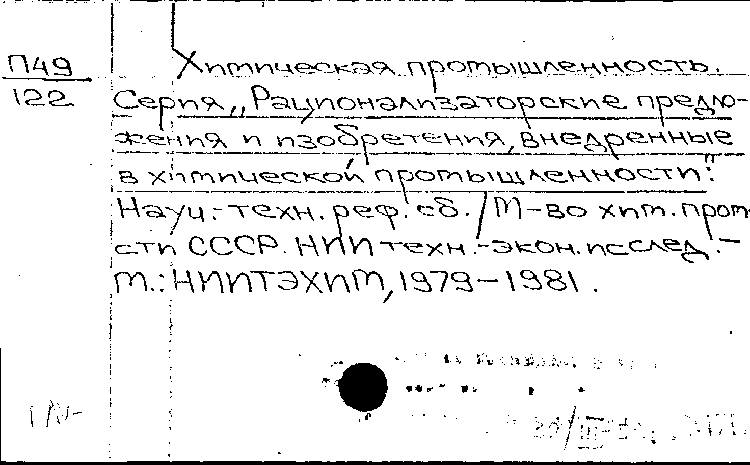 П49
122
Химическая промышленность.
Серия „Рационализаторские предло-
жения и изобретения, внедренные
в химической промышленности":
Науч.-техн. реф. сб. / М-во хим. пром-
сти СССР. НИИ техн.-экон. исслед. –
М.: НИИТЭХИМ, 1979–1981.